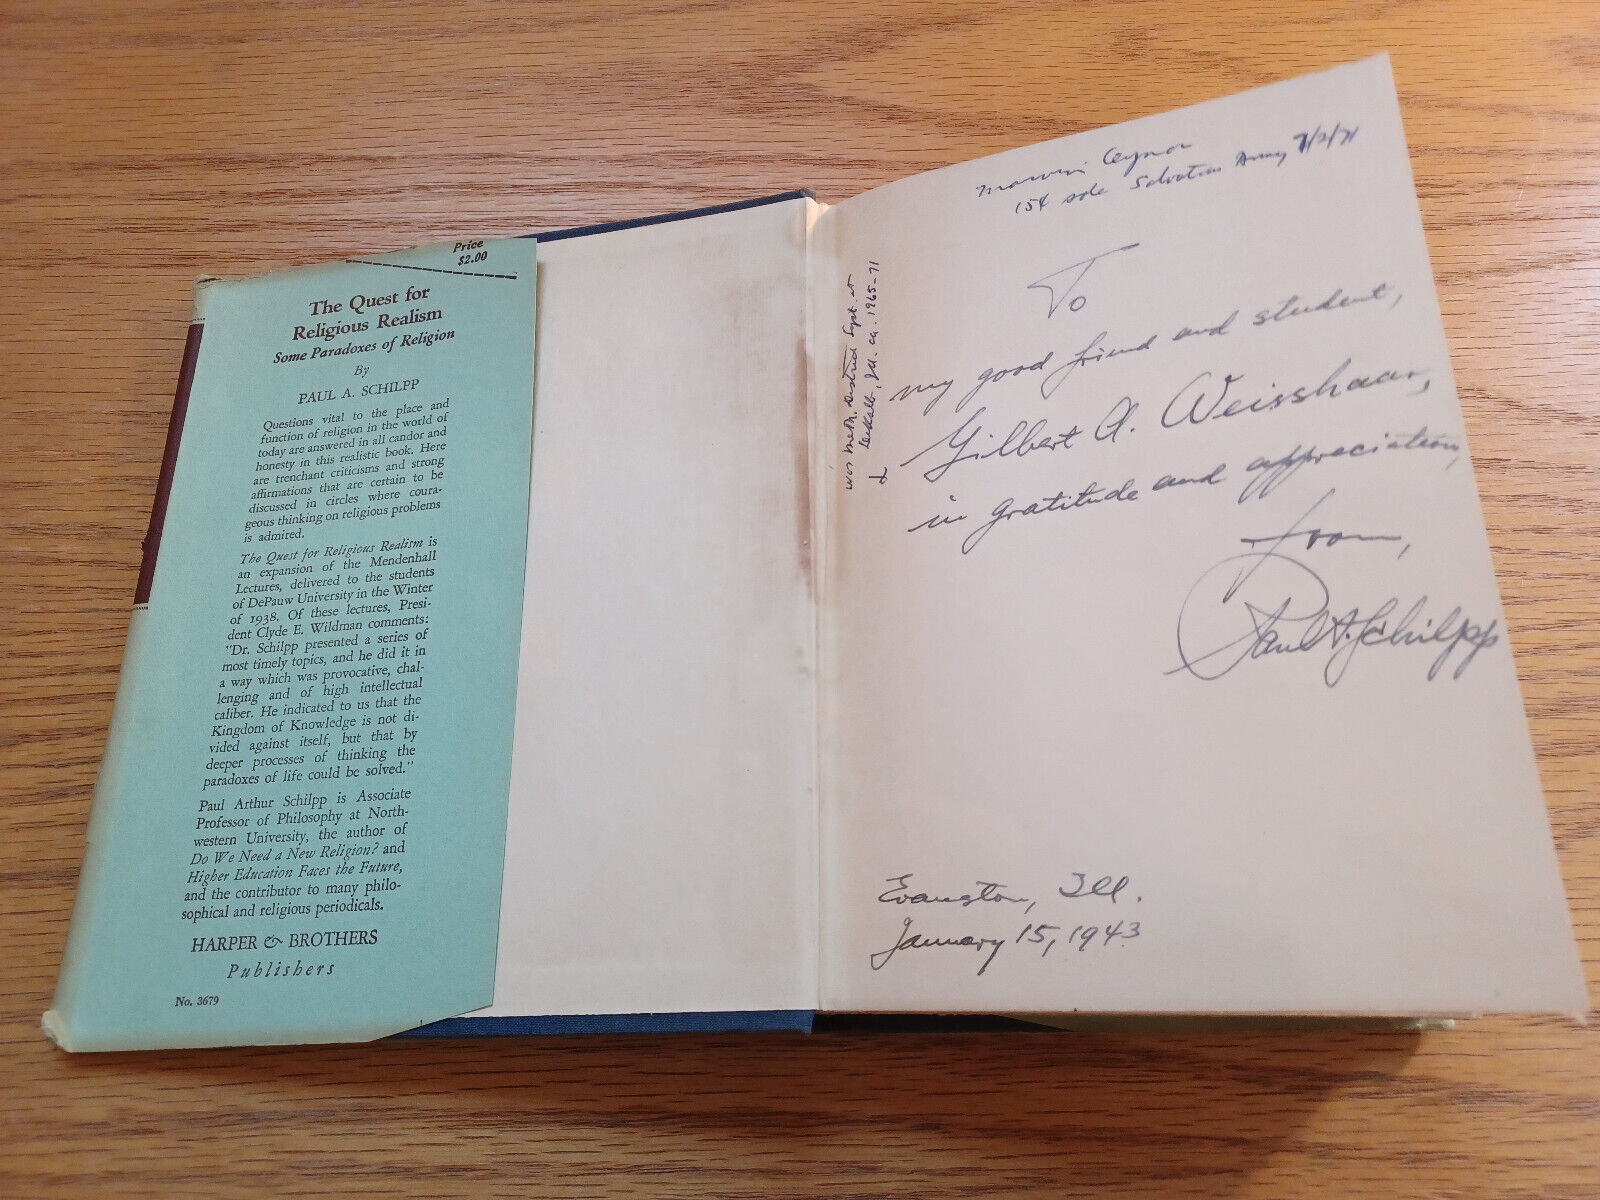 Price
$2.00
The Quest for
Religious Realism
Some Paradoxes of Religion
By
PAUL A. SCHILPP
Questions vital to the place and
function of religion in the world of
today are answered in all candor and
honesty in this realistic book. Here
are trenchant criticisms and strong
affirmations that are certain to be
discussed in circles where coura-
geous thinking on religious problems
is admired.
The Quest for Religious Realism is
an expansion of the Mendenhall
Lectures, delivered to the students
of DePauw University in the Winter
of 1938. Of these lectures, Presi-
dent Clyde E. Wildman comments:
"Dr. Schilpp presented a series of
most timely topics, and he did it in
a way which was provocative, chal-
lenging and of high intellectual
caliber. He indicated to us that the
Kingdom of Knowledge is not di-
vided against itself, but that by
deeper processes of thinking the
paradoxes of life could be solved."
Paul Arthur Schilpp is Associate
Professor of Philosophy at North-
western University, the author of
Do We Need a New Religion? and
Higher Education Faces the Future,
and the contributor to many philo-
sophical and religious periodicals.
HARPER & BROTHERS
Publishers
No. 3679
Marvin Ceynor
15¢ sale Salvation Army 7/2/71
was Meth. District Supt. at
DeKalb, Ill. ca. 1965-71
To
my good friend and student,
Gilbert A. Weisshaar,
in gratitude and appreciation,
from,
Paul A. Schilpp
Evanston, Ill.
January 15, 1943